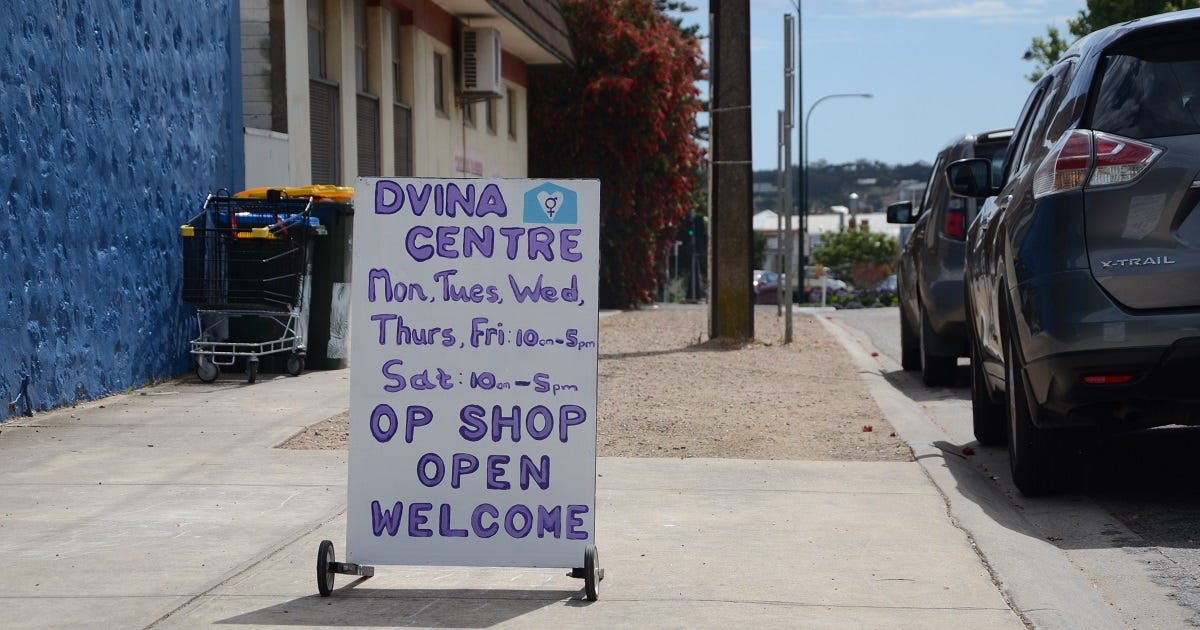 DVINA
CENTRE
Mon, Tues, Wed,
Thurs, Fri: 10am-5pm
Sat: 10am-5pm
OP SHOP
OPEN
WELCOME
X-TRAIL